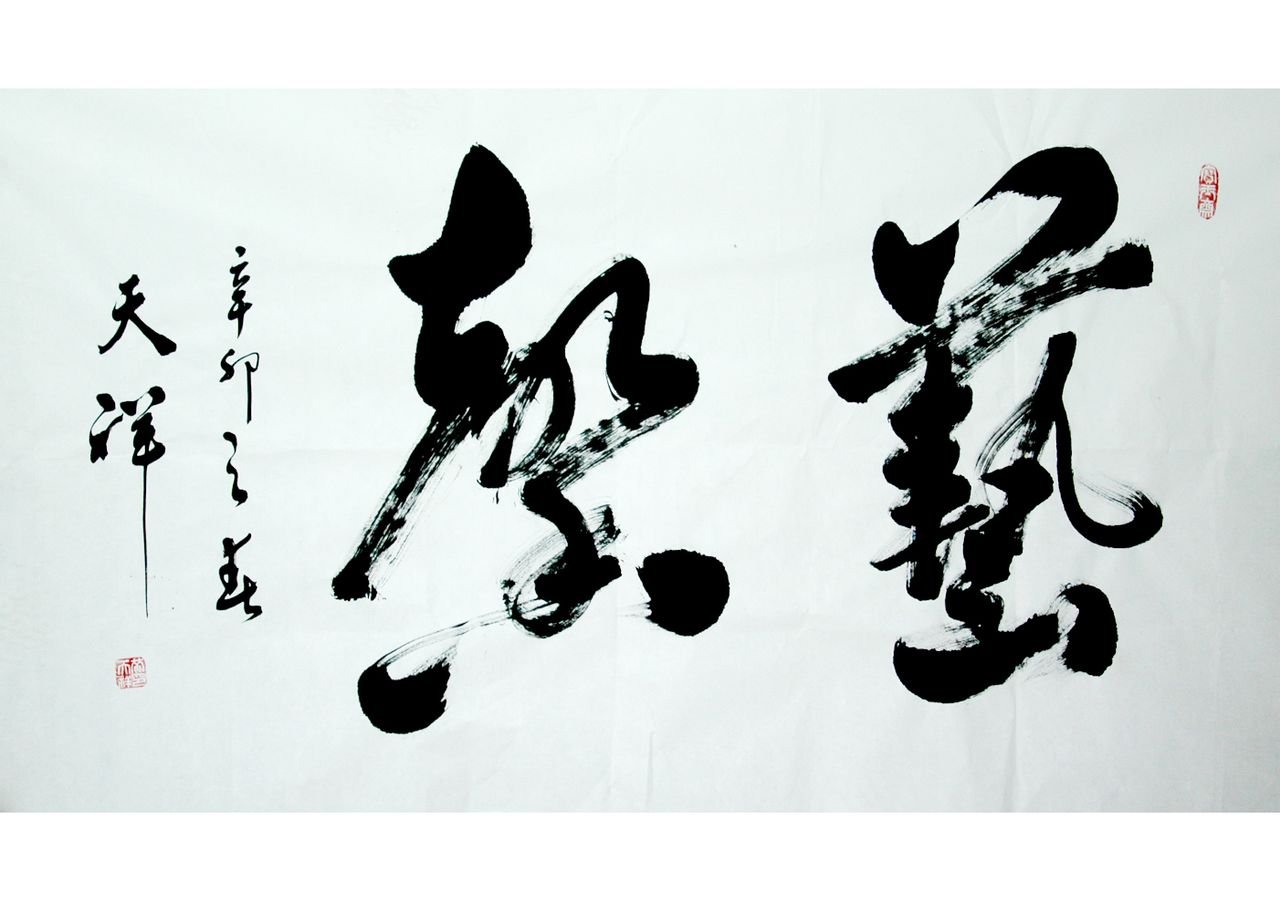 藝馨
辛卯之春
天祥